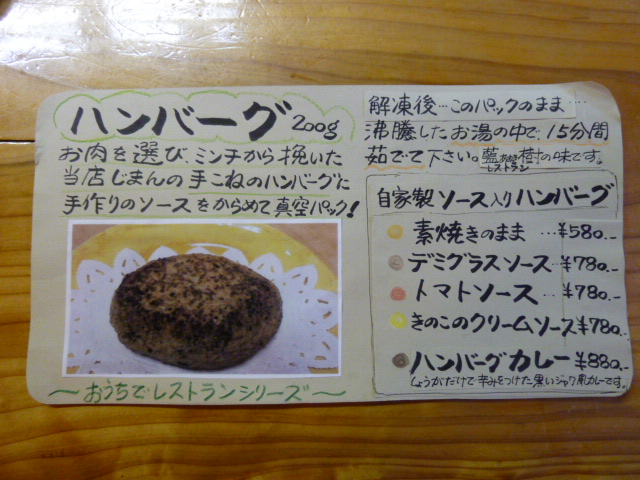 ハンバーグ 200g
お肉を選び、ミンチから挽いた
当店じまんの手こねのハンバーグに
手作りのソースをからめて真空パック!
〜おうちでレストランシリーズ〜
解凍後…このパックのまま…
沸騰したお湯の中で、15分間
茹でて下さい。藍樹の味です。
レストラン
自家製ソース入りハンバーグ
素焼きのまま…¥580.-
デミグラスソース…¥780.-
トマトソース…¥780.-
きのこのクリームソース…¥780.-
ハンバーグカレー¥880.-
しょうがだけで辛みをつけた黒いジャワ風カレーです。